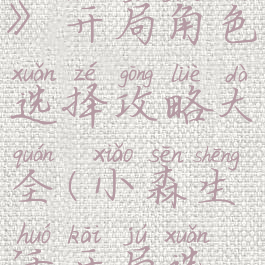 》开局角色
xuǎn zé gōng lüè dà
选择攻略大
quán xiǎo sēn shēng
全(小森生
huó kāi jú xuǎn
活开局选